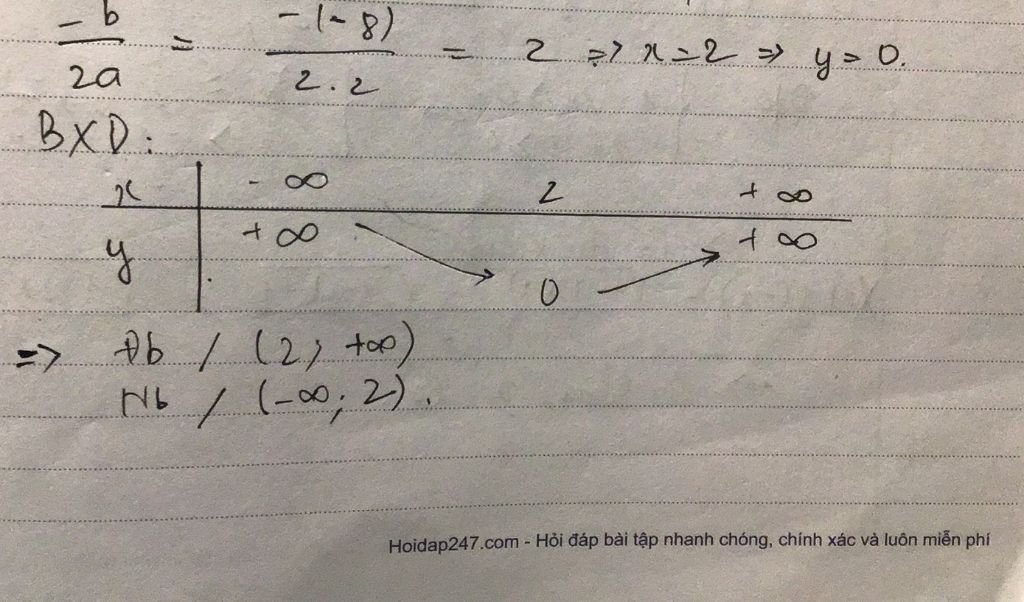 -b/2a = -(-8)/2.2 = 2 => x=2 => y=0.
BXD:
x -∞ 2 +∞
y +∞ 0 +∞
=> Đb / (2; +∞)
Nb / (-∞; 2).
Hoidap247.com - Hỏi đáp bài tập nhanh chóng, chính xác và luôn miễn phí